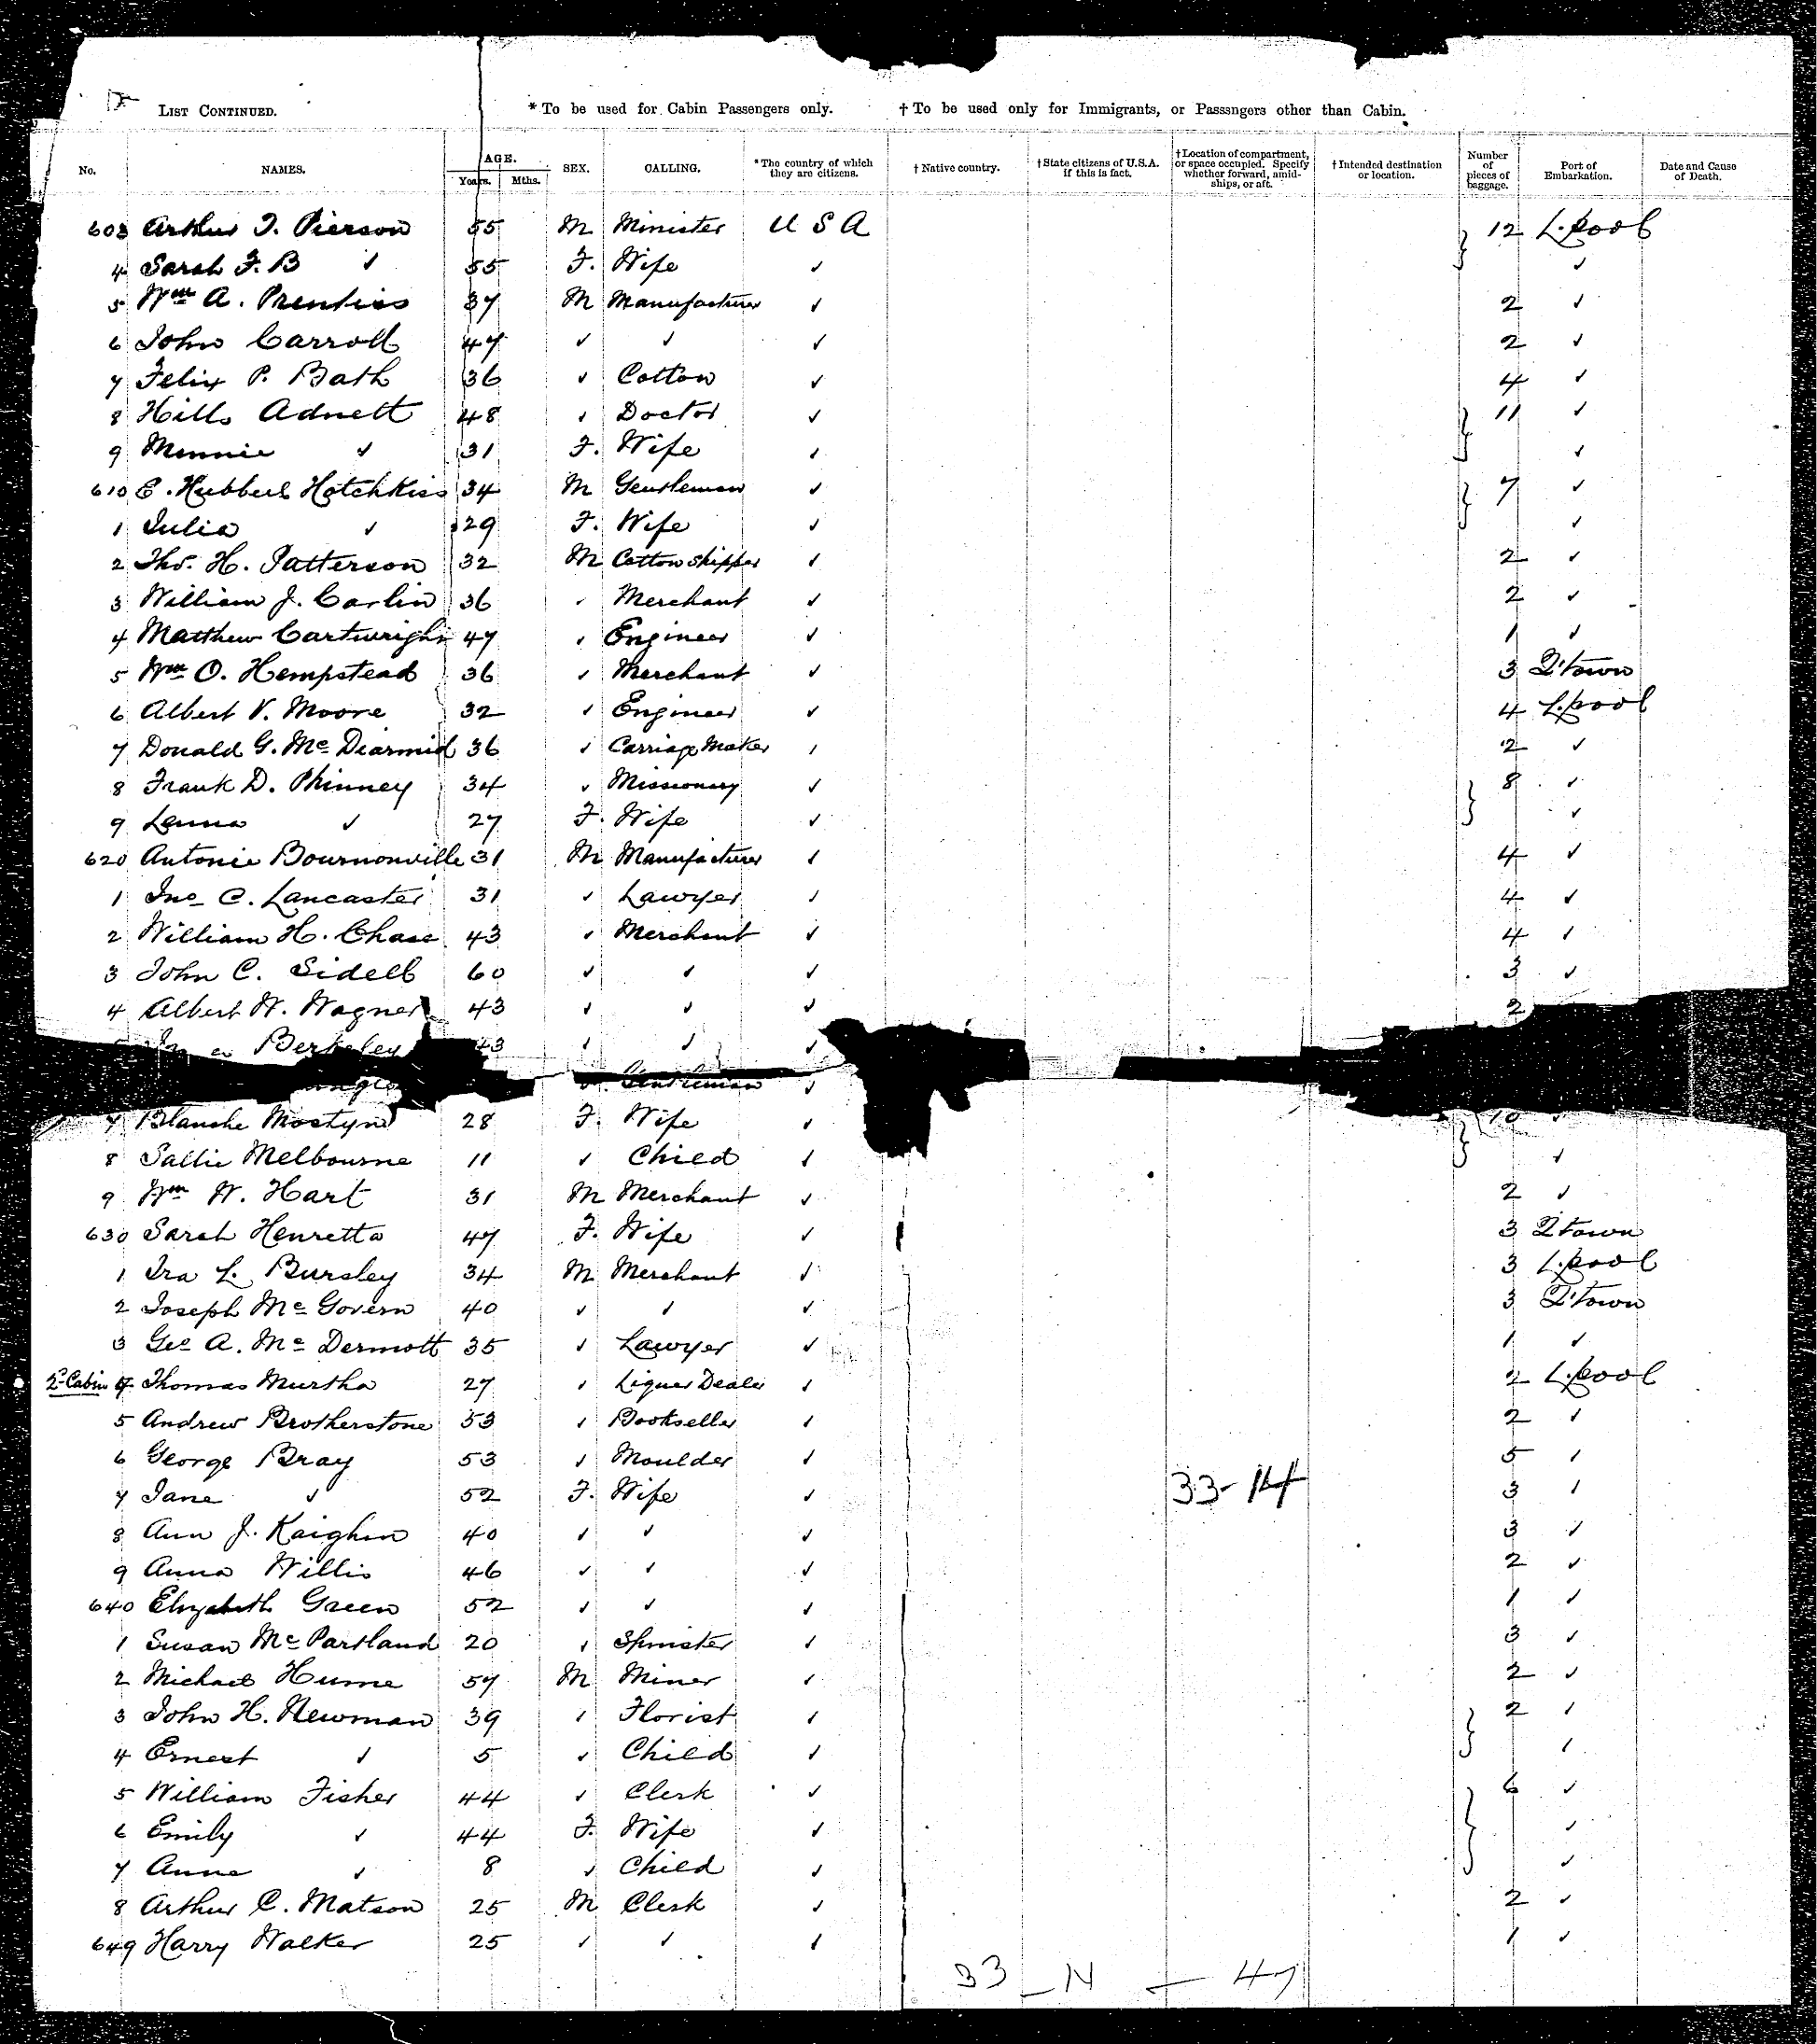 LIST CONTINUED. * To be used for Cabin Passengers only. † To be used only for Immigrants, or Passsngers other than Cabin.
No. NAMES. AGE. Years. Mths. SEX. CALLING. *The country of which they are citizens. † Native country. †State citizens of U.S.A. if this is fact. †Location of compartment, or space occupied. Specify whether forward, amid-ships, or aft. †Intended destination or location. Number of pieces of baggage. Port of Embarkation. Date and Cause of Death.
603 Arthur T. Pierson 55 M Minister U S A 12 L.pool
4 Sarah F. B ✓ 55 F. Wife ✓ ✓
5 Wm A. Prentiss 37 M Manufacturer ✓ 2 ✓
6 John Carroll 47 ✓ ✓ ✓ 2 ✓
7 Felix P. Bath 36 ✓ Cotton ✓ 4 ✓
8 Hills Adnett 48 ✓ Doctor ✓ 11 ✓
9 Minnie ✓ 31 F. Wife ✓ ✓
610 E. Hubbell Hotchkiss 34 M Gentleman ✓ 7 ✓
1 Julia ✓ 29 F. Wife ✓ ✓
2 Thos. H. Patterson 32 M Cotton Shipper ✓ 2 ✓
3 William J. Carlin 36 ✓ Merchant ✓ 2 ✓
4 Matthew Cartwright 47 ✓ Engineer ✓ 1 ✓
5 Wm O. Hempstead 36 ✓ Merchant ✓ 3 Q'town
6 Albert V. Moore 32 ✓ Engineer ✓ 4 L.pool
7 Donald G. Mc Diarmid 36 ✓ Carriage Maker ✓ 2 ✓
8 Frank D. Phinney 34 ✓ Missionary ✓ 8 ✓
9 Lenna ✓ 27 F. Wife ✓ ✓
620 Antonie Bournonville 31 M Manufacturer ✓ 4 ✓
1 Jno C. Lancaster 31 ✓ Lawyer ✓ 4 ✓
2 William H. Chase 43 ✓ Merchant ✓ 4 ✓
3 John C. Sidell 60 ✓ ✓ ✓ 3 ✓
4 Albert W. Wagner 43 ✓ ✓ ✓ 2
Berkeley 43 ✓ ✓ ✓
Gentleman ✓
7 Blanche Mostyn 28 F. Wife ✓ 10 ✓
8 Sallie Melbourne 11 ✓ Child ✓ ✓
9 Wm W. Hart 31 M Merchant ✓ 2 ✓
630 Sarah Henretta 47 F. Wife ✓ 3 Q'town
1 Ira L. Bursley 34 M Merchant ✓ 3 L.pool
2 Joseph Mc Govern 40 ✓ ✓ ✓ 3 Q'town
3 Geo A. Mc Dermott 35 ✓ Lawyer ✓ 1 ✓
2d Cabin 4 Thomas Murtha 27 ✓ Liquor Dealer ✓ 2 L.pool
5 Andrew Brotherstone 53 ✓ Bookseller ✓ 2 ✓
6 George Bray 53 ✓ Moulder ✓ 5 ✓
7 Jane ✓ 52 F. Wife ✓ 33-14 3 ✓
8 Ann J. Kaighin 40 ✓ ✓ ✓ 3 ✓
9 Anna Willis 46 ✓ ✓ ✓ 2 ✓
640 Elizabeth Green 52 ✓ ✓ ✓ 1 ✓
1 Susan Mc Partland 20 ✓ Spinster ✓ 3 ✓
2 Michael Hume 57 M Miner ✓ 2 ✓
3 John H. Newman 39 ✓ Florist ✓ 2 ✓
4 Ernest ✓ 5 ✓ Child ✓ ✓
5 William Fisher 44 ✓ Clerk ✓ 6 ✓
6 Emily ✓ 44 F. Wife ✓ ✓
7 Anne ✓ 8 ✓ Child ✓ ✓
8 Arthur C. Matson 25 M Clerk ✓ 2 ✓
649 Harry Walker 25 ✓ ✓ ✓ 1 ✓
33 - N - 47